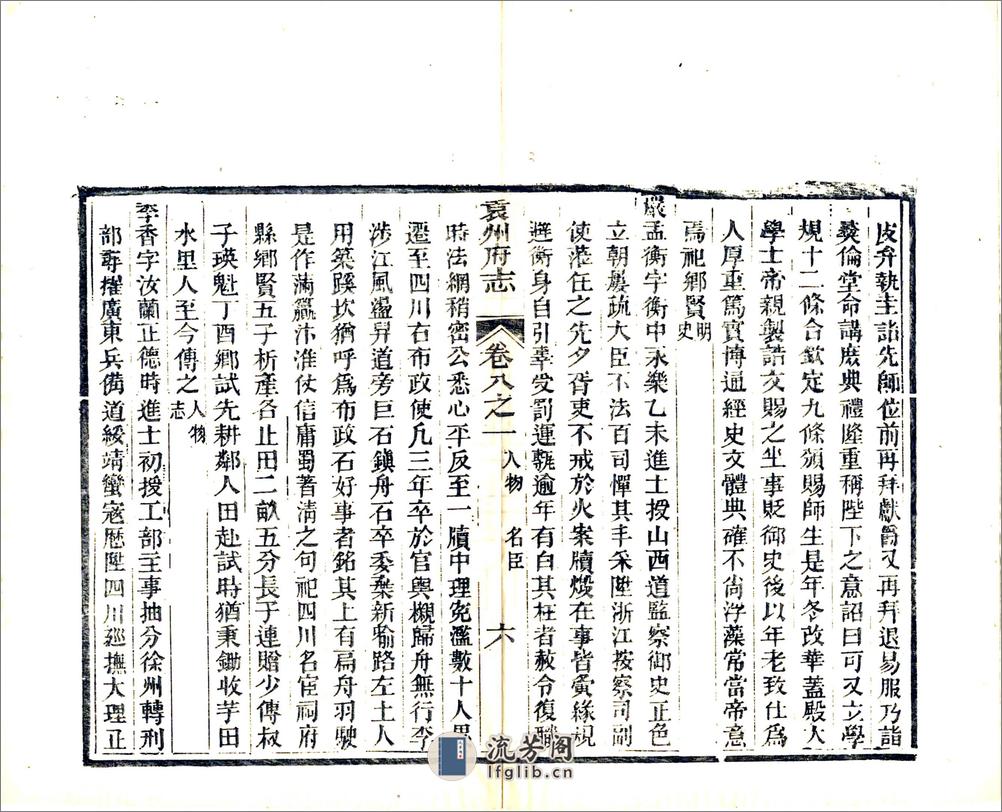 皮弁執圭詣先師位前再拜獻爵又再拜退易服乃詣
彝倫堂命講庶典禮隆重稱陛下之意詔曰可又立學
規十二條合欽定九條頒賜師生是年冬改華蓋殿大
學士帝親製誥文賜之坐事貶御史後以年老致仕為
人厚重篤實博通經史文體典確不尚浮藻常當帝意
焉祀鄉賢明史
嚴孟衡字衡中永樂乙未進士授山西道監察御史正色
立朝屢疏大臣不法百司憚其手采陞浙江按察司副
使蒞任之先夕胥吏不戒於火案牘燬在事皆夤緣規
避衡身自引辜受罰運甎逾年有白其枉者赦令復職
袁州府志 卷八之一 人物 名臣 六
時法網稍密公悉心平反至一牘中理冤濫數十人累
遷至四川右布政使凡三年卒於官輿櫬歸舟無行李
涉江風盪昇道旁巨石鎮舟石卒委棄新喻路左土人
用築蹊坎猶呼為布政石好事者銘其上有扁舟羽駛
是作滿籯汴淮仗信庸蜀著清之句祀四川名宦祠府
縣鄉賢五子析產各止田二畝五分長于連贈少傅叔
子瑛魁丁酉鄉試先耕鄰人田赴試時猶秉鋤收芋田
水里人至今傳之人物志
李香字汝蘭正德時進士初授工部主事抽分徐州轉刑
部尋擢廣東兵備道綏靖蠻寇歷陞四川巡撫大理正
流芳阁
lfglib.cn